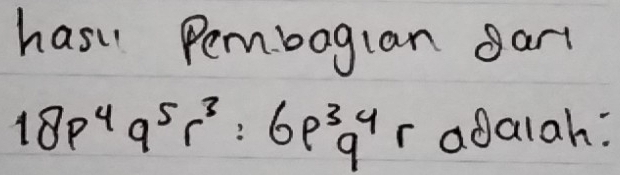 hasil Pembagian dari
18p⁴ q⁵ r³ : 6p³ q⁴ r adalah :